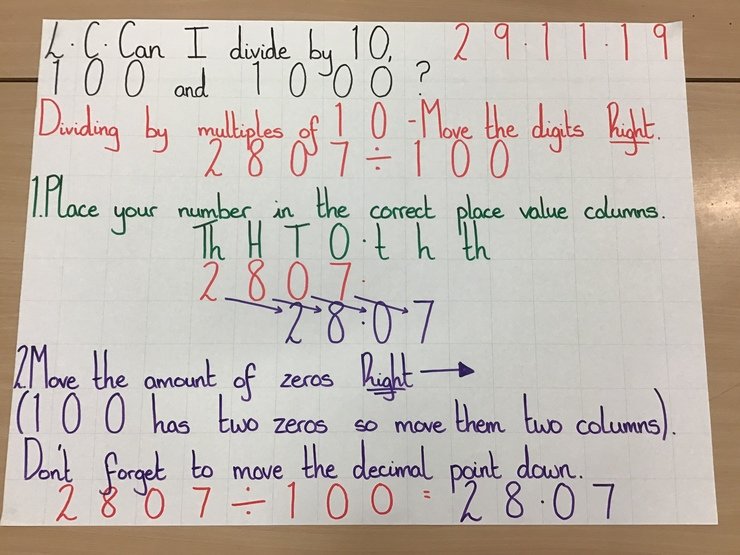 L.C. Can I divide by 10, 29.11.19
100 and 1000?
Dividing by multiples of 10 - Move the digits Right.
2807 ÷ 100
1. Place your number in the correct place value columns.
Th H T O . t h th
2 8 0 7 .
2 8 . 0 7
2 Move the amount of zeros Right →
(100 has two zeros so move them two columns).
Don't forget to move the decimal point down.
2807 ÷ 100 = 28.07